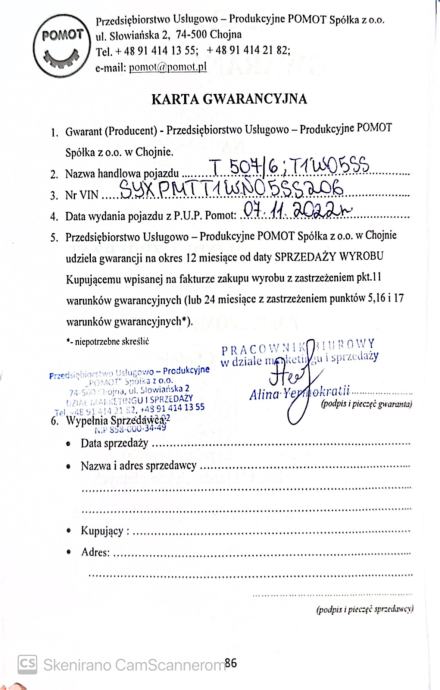 POMOT
Przedsiębiorstwo Usługowo – Produkcyjne POMOT Spółka z o.o.
ul. Słowiańska 2, 74-500 Chojna
Tel. + 48 91 414 13 55; + 48 91 414 21 82;
e-mail: pomot@pomot.pl
KARTA GWARANCYJNA
1. Gwarant (Producent) - Przedsiębiorstwo Usługowo – Produkcyjne POMOT
Spółka z o.o. w Chojnie.
2. Nazwa handlowa pojazdu ..... T 507/6 ; T1W05SS
3. Nr VIN .... SYXPMTT1WN05SS206
4. Data wydania pojazdu z P.U.P. Pomot: 07.11.2022r
5. Przedsiębiorstwo Usługowo – Produkcyjne POMOT Spółka z o.o. w Chojnie
udziela gwarancji na okres 12 miesiące od daty SPRZEDAŻY WYROBU
Kupującemu wpisanej na fakturze zakupu wyrobu z zastrzeżeniem pkt.11
warunków gwarancyjnych (lub 24 miesiące z zastrzeżeniem punktów 5,16 i 17
warunków gwarancyjnych*).
*- niepotrzebne skreślić
PRACOWNIK BIUROWY
w dziale marketingu i sprzedaży
Alina Yermokratii
(podpis i pieczęć gwaranta)
Przedsiębiorstwo Usługowo – Produkcyjne
„POMOT" Spółka z o.o.
74-500 Chojna, ul. Słowiańska 2
DZIAŁ MARKETINGU I SPRZEDAŻY
Tel. +48 91 414 21 82, +48 91 414 13 55
NIP 858-000-34-49
6. Wypełnia Sprzedawca
• Data sprzedaży
• Nazwa i adres sprzedawcy
• Kupujący :
• Adres:
(podpis i pieczęć sprzedawcy)
86
CS Skenirano CamScannerom